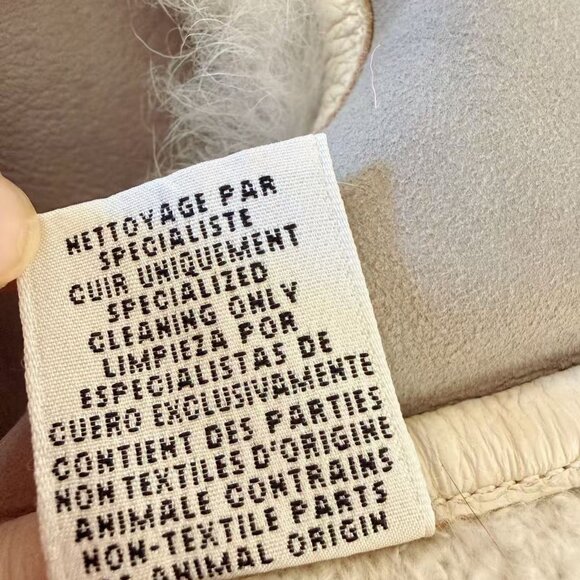 NETTOYAGE PAR
SPECIALISTE
CUIR UNIQUEMENT
SPECIALIZED
CLEANING ONLY
LIMPIEZA POR
ESPECIALISTAS DE
CUERO EXCLUSIVAMENTE
CONTIENT DES PARTIES
NON TEXTILES D'ORIGINE
ANIMALE CONTRAINS
NON-TEXTILE PARTS
OF ANIMAL ORIGIN